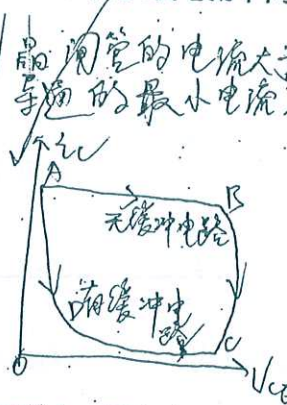 晶闸管的电流大于
导通的最小电流
iC
A
B
无缓冲电路
D有缓冲电
路
C
O
VCE